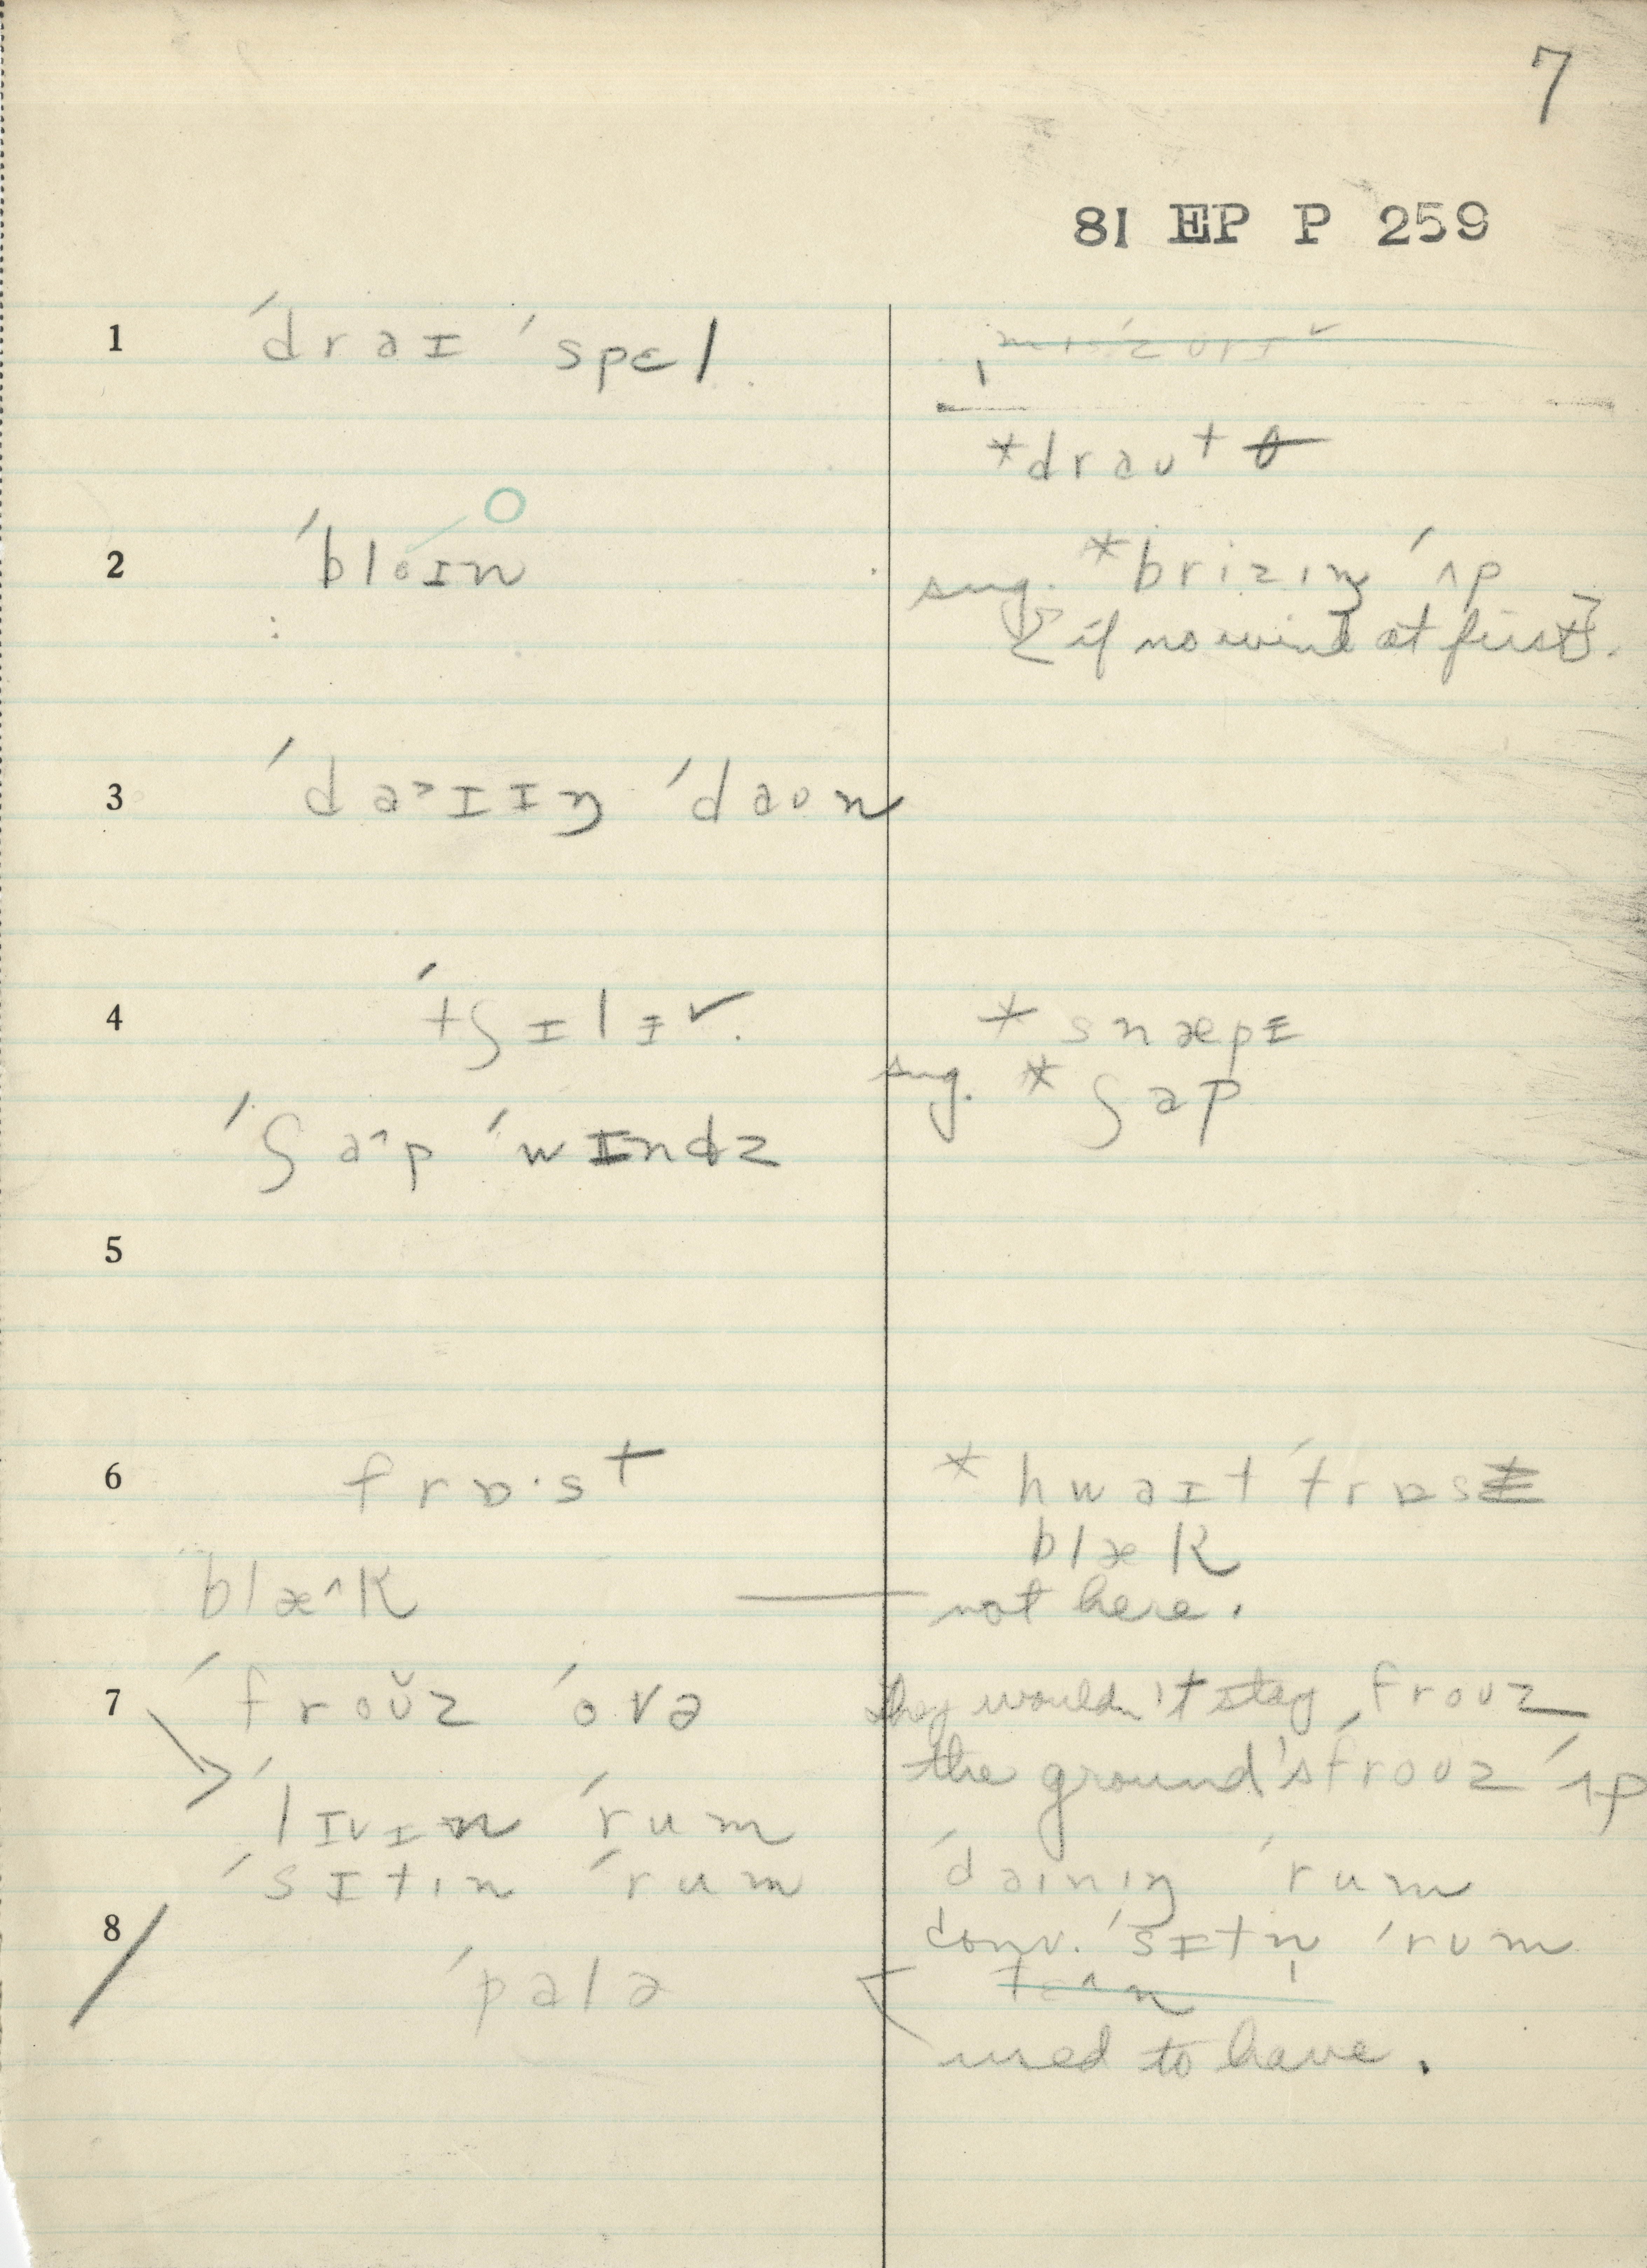 7
81 EP P 259
1 ˈdraɪ ˈspɛl
*draut
2 ˈbloɪn
sug. *brizɪŋ ˈʌp
[if no wind at first].
3 ˈda˃ɪɪŋ ˈdaʊn
4 ˈtʃɪlɪˇ. *snæpɪ
sug. *ʃap
ˈʃa^p ˈwɪndz
5
6 frɒ·st *hwaɪt ˈfrɒst
blæk
blæ^k — not here.
7 ˈfroŭz ˈovə they wouldn't stay ˈfrouz
the ground's frouz ˈʌp
ˈlɪvɪn ˈrum
ˈsɪtɪn ˈrum ˈdainɪŋ ˈrum
8 conv. ˈsɪtn̩ ˈrum
ˈpalə
used to have.